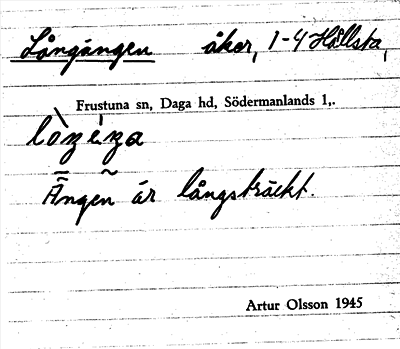 Långängen åker, 1-4 Hållsta,
Frustuna sn, Daga hd, Södermanlands l,.
Ängen är långsträckt.
Artur Olsson 1945